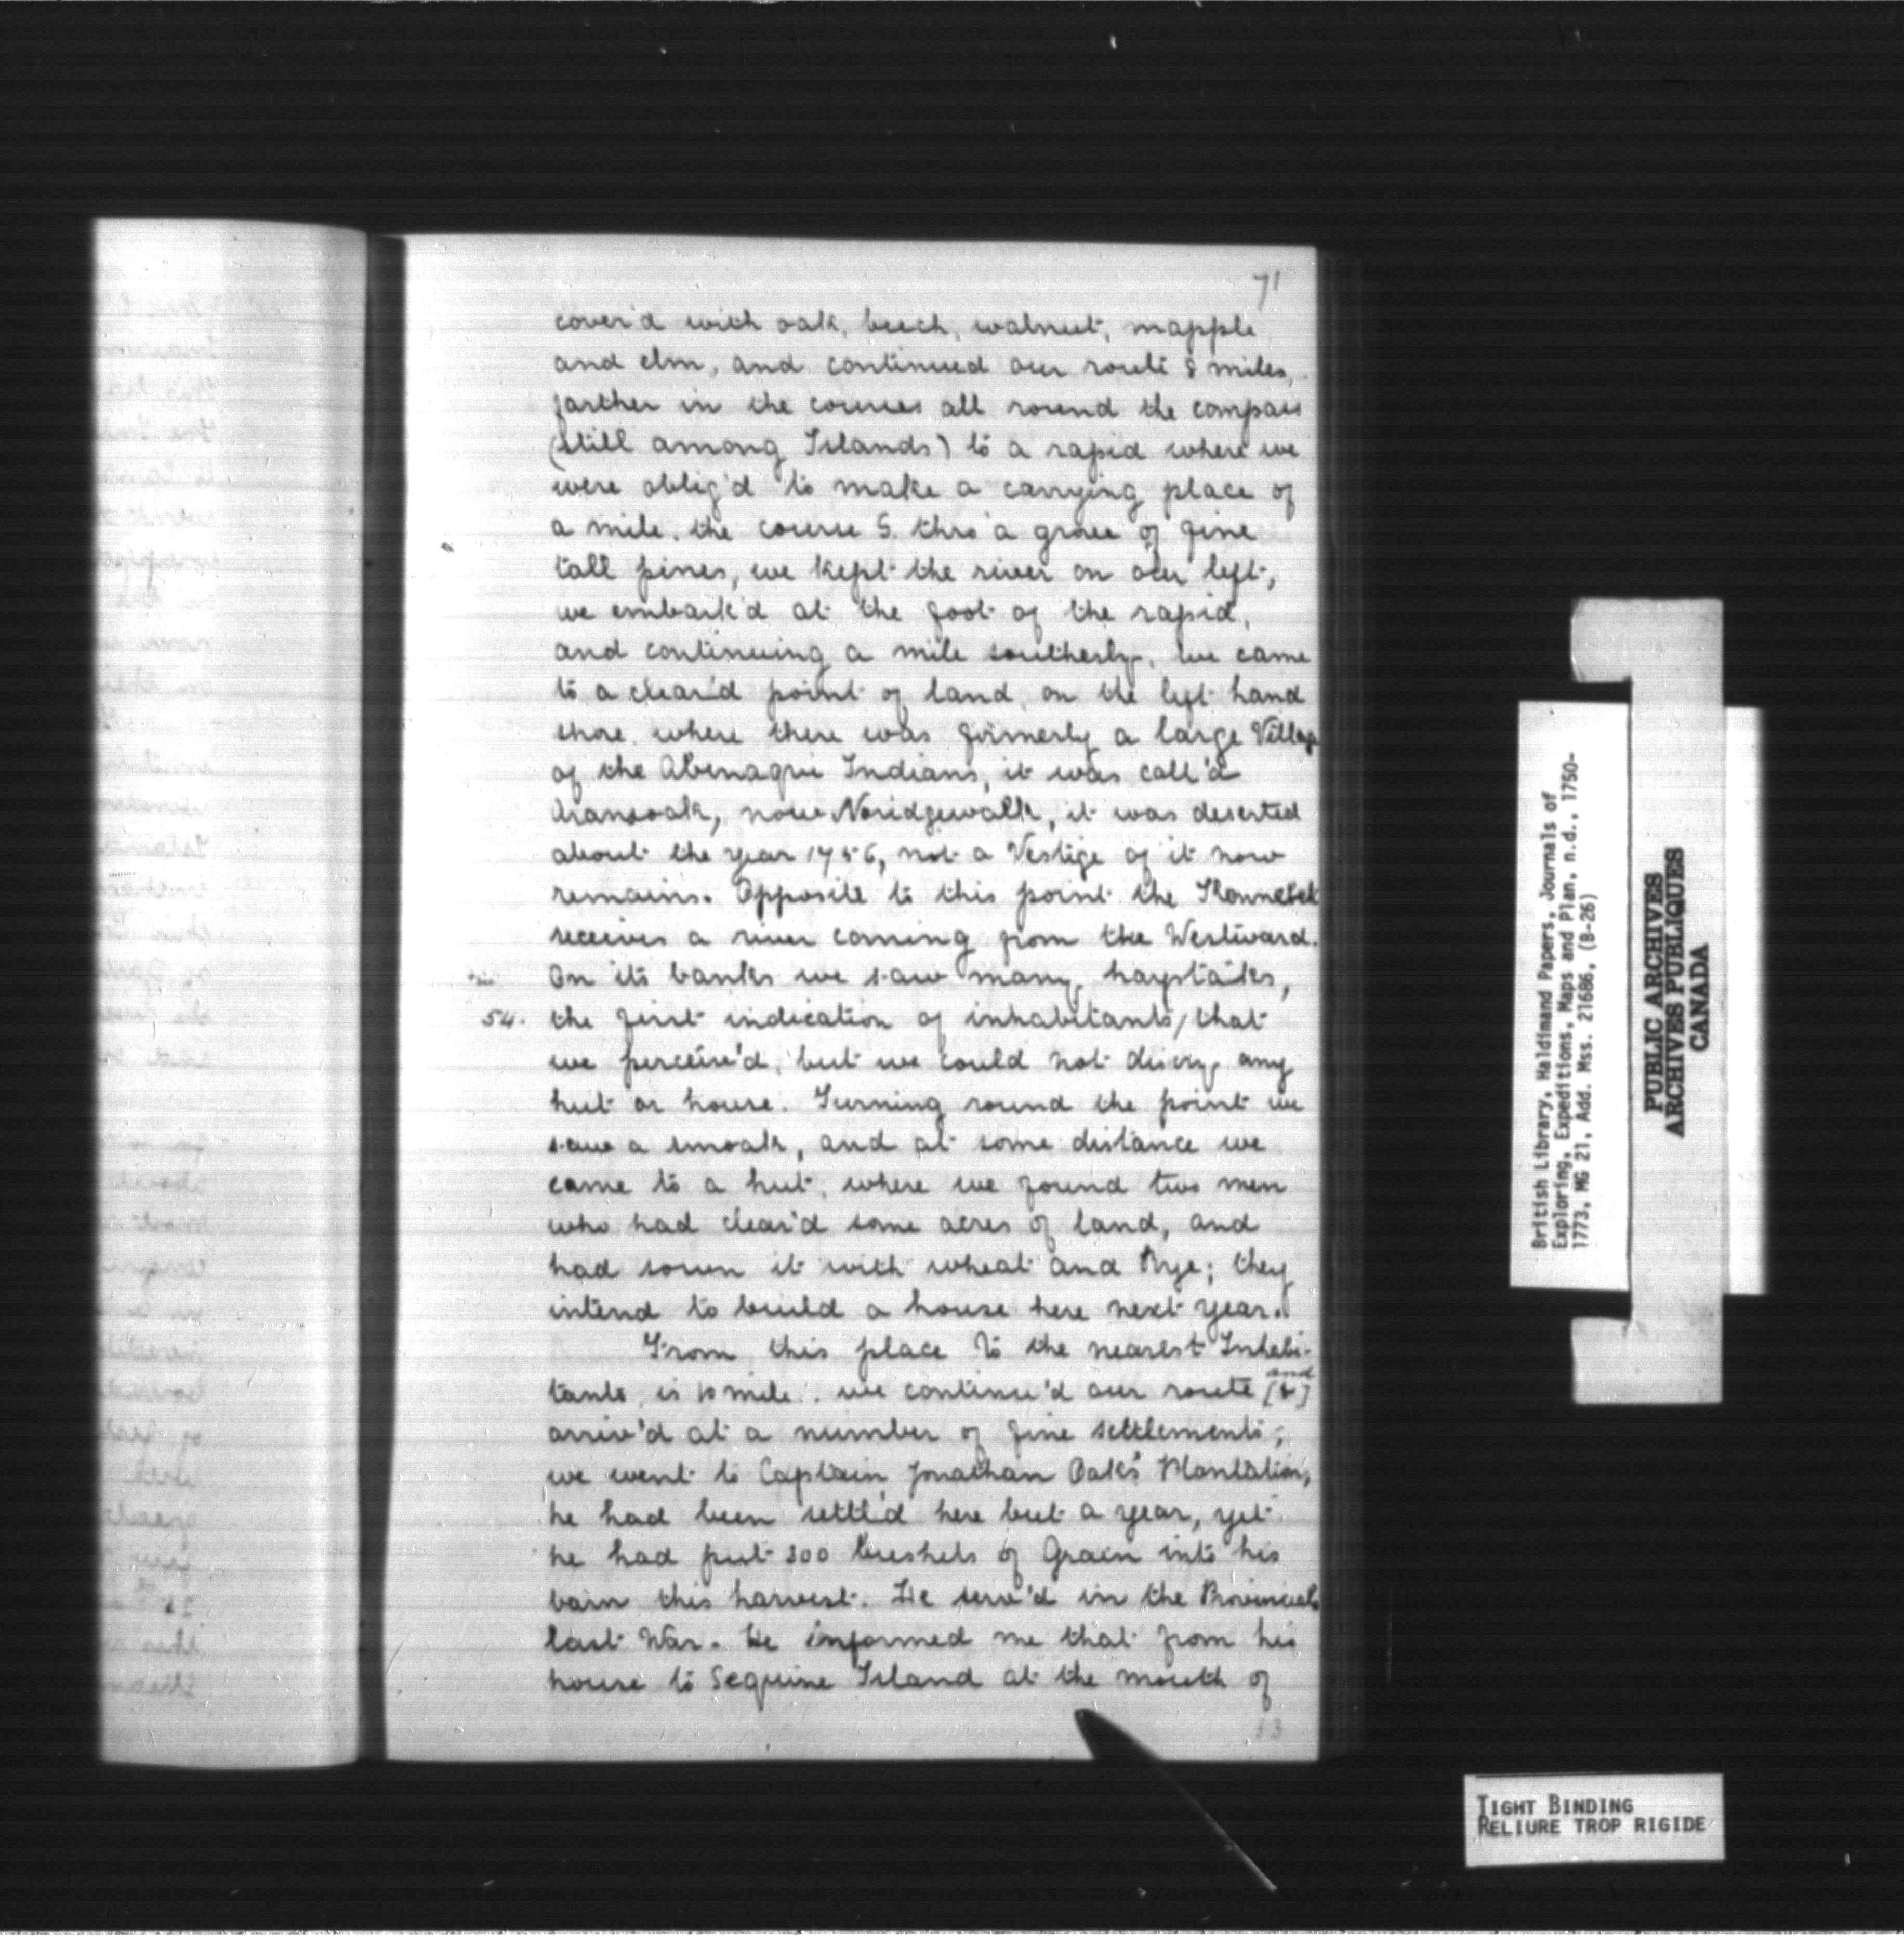 71
cover'd with oak, beech, walnut, mapple
and elm, and continued our route 8 miles,
farther in the courses all round the compass
(still among Islands) to a rapid where we
were oblig'd to make a carrying place of
a mile. the course S. thro' a grove of fine
tall pines, we kept the river on our left,
we embark'd at the foot of the rapid,
and continuing a mile southerly, we came
to a clear'd point of land, on the left hand
shore, where there was formerly a large Village
of the Abenaqui Indians, it was call'd
Aransoak, now Noridgewalk, it was deserted
about the year 1756, not a Vestige of it now
remains. Opposite to this point the Kennebek
receives a river coming from the Westward.
On its banks we saw many haystacks,
54. the first indication of inhabitants/that
we perceiv'd, but we could not discry any
hut or house. Turning round the point we
saw a smoak, and at some distance we
came to a hut, where we found two men
who had clear'd some acres of land, and
had sown it with wheat and Rye; they
intend to build a house here next year.
From this place to the nearest Inhabi-
tants is 10 mile. we continu'd our route and [&]
arriv'd at a number of fine settlements;
we went to Captain Jonathan Oaks' Plantation,
he had been settl'd here but a year, yet
he had put 300 bushels of Grain into his
barn this harvest. He serv'd in the Provincials
last War. He informed me that from his
house to Sequine Island at the mouth of
British Library, Haldimand Papers, Journals of
Exploring, Expeditions, Maps and Plan, n.d., 1750-
1773, MG 21, Add. Mss. 21686, (B-26)
PUBLIC ARCHIVES
ARCHIVES PUBLIQUES
CANADA
TIGHT BINDING
RELIURE TROP RIGIDE